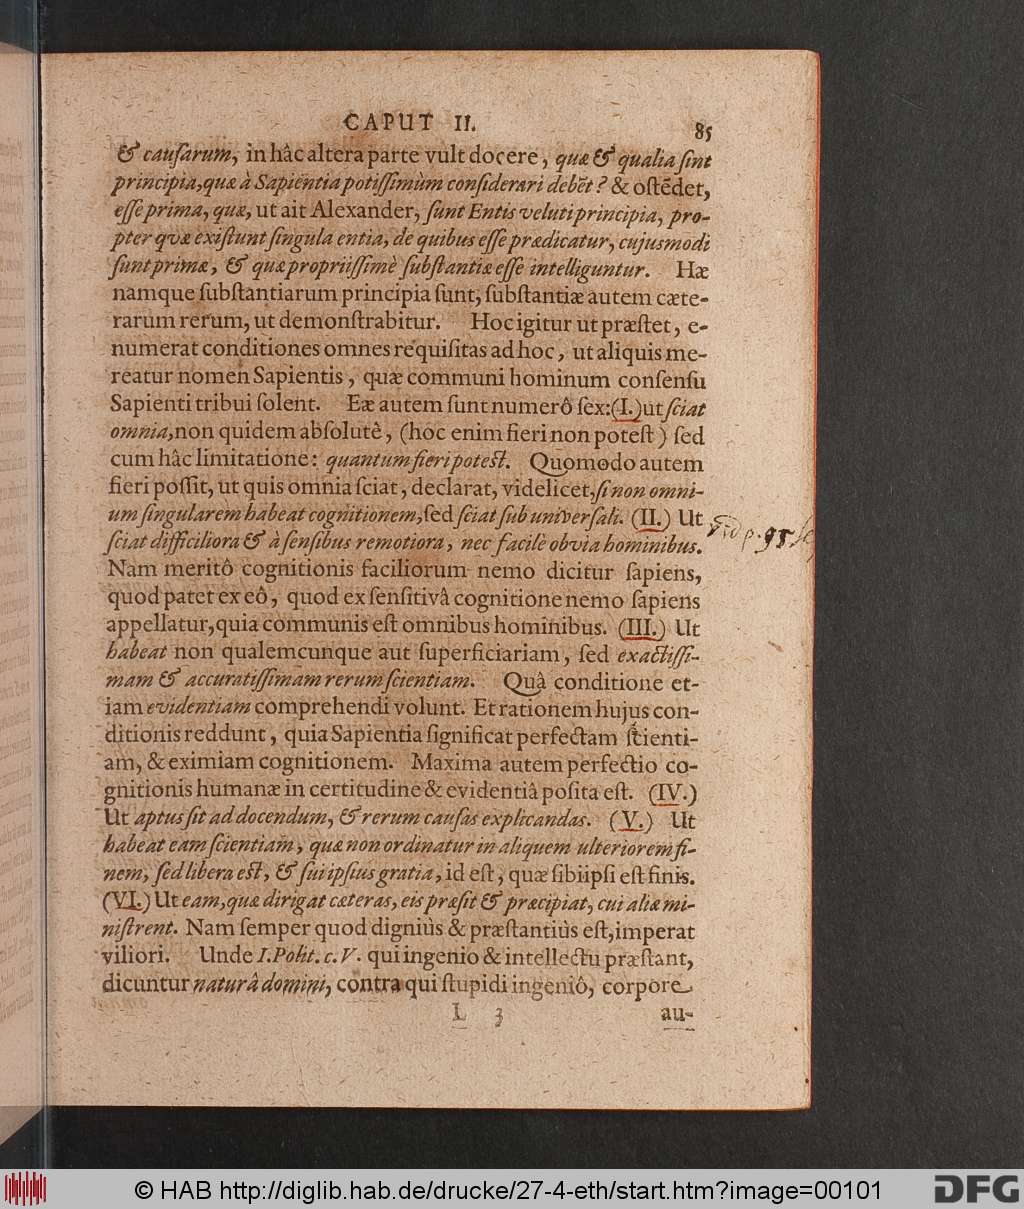 CAPUT II. 85
& cauſarum, in hâc altera parte vult docere, quæ & qualia ſint
principia, quæ à Sapientia potiſſimùm conſiderari debēt? & oſtēdet,
eſſe prima, quæ, ut ait Alexander, ſunt Entis veluti principia, pro-
pter qvæ exiſtunt ſingula entia, de quibus eſſe prædicatur, cujusmodi
ſunt prima, & quæ propriiſſimè ſubſtantiæ eſſe intelliguntur. Hæ
namque ſubſtantiarum principia ſunt, ſubſtantiæ autem cæte-
rarum rerum, ut demonſtrabitur. Hoc igitur ut præſtet, e-
numerat conditiones omnes requiſitas ad hoc, ut aliquis me-
reatur nomen Sapientis, quæ communi hominum conſenſu
Sapienti tribui ſolent. Eæ autem ſunt numerô ſex: (I.) ut ſciat
omnia, non quidem abſolutè, (hoc enim fieri non poteſt) ſed
cum hâc limitatione: quantum fieri potest. Quomodo autem
fieri poſſit, ut quis omnia ſciat, declarat, videlicet, ſi non omni-
um ſingularem habeat cognitionem, ſed ſciat ſub univerſali. (II.) Ut
ſciat difficiliora & à ſenſibus remotiora, nec facilè obvia hominibus.
p. 95
Nam meritô cognitionis faciliorum nemo dicitur ſapiens,
quod patet ex eô, quod ex ſenſitivâ cognitione nemo ſapiens
appellatur, quia communis eſt omnibus hominibus. (III.) Ut
habeat non qualemcunque aut ſuperficiariam, ſed exactiſſi-
mam & accuratiſſimam rerum ſcientiam. Quâ conditione et-
iam evidentiam comprehendi volunt. Et rationem hujus con-
ditionis reddunt, quia Sapientia ſignificat perfectam ſcienti-
am, & eximiam cognitionem. Maxima autem perfectio co-
gnitionis humanæ in certitudine & evidentiâ poſita eſt. (IV.)
Ut aptus ſit ad docendum, & rerum cauſas explicandas. (V.) Ut
habeat eam ſcientiam, quæ non ordinatur in aliquem ulteriorem fi-
nem, ſed libera est, & ſui ipſius gratia, id eſt, quæ ſibi ipſi eſt finis.
(VI.) Ut eam, quæ dirigat cæteras, eis præſit & præcipiat, cui aliæ mi-
niſtrent. Nam ſemper quod digniùs & præſtantiùs eſt, imperat
viliori. Unde I. Polit. c. V. qui ingenio & intellectu præſtant,
dicuntur naturâ domini, contra qui ſtupidi ingeniô, corpore
L 3 au-
© HAB http://diglib.hab.de/drucke/27-4-eth/start.htm?image=00101
DFG